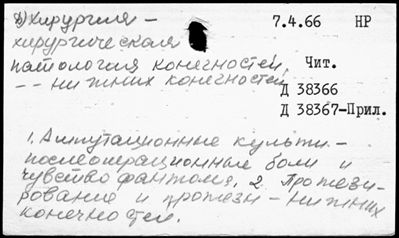 8) Хирургия –
7.4.66 НР
хирургическая
патология конечностей,
Чит.
-- нижних конечностей
Д 38366
Д 38367-Прил.
1. Ампутационные культи –
послеоперационные боли и
чувство фантома. 2. Протези-
рование и протезы – нижних
конечностей.